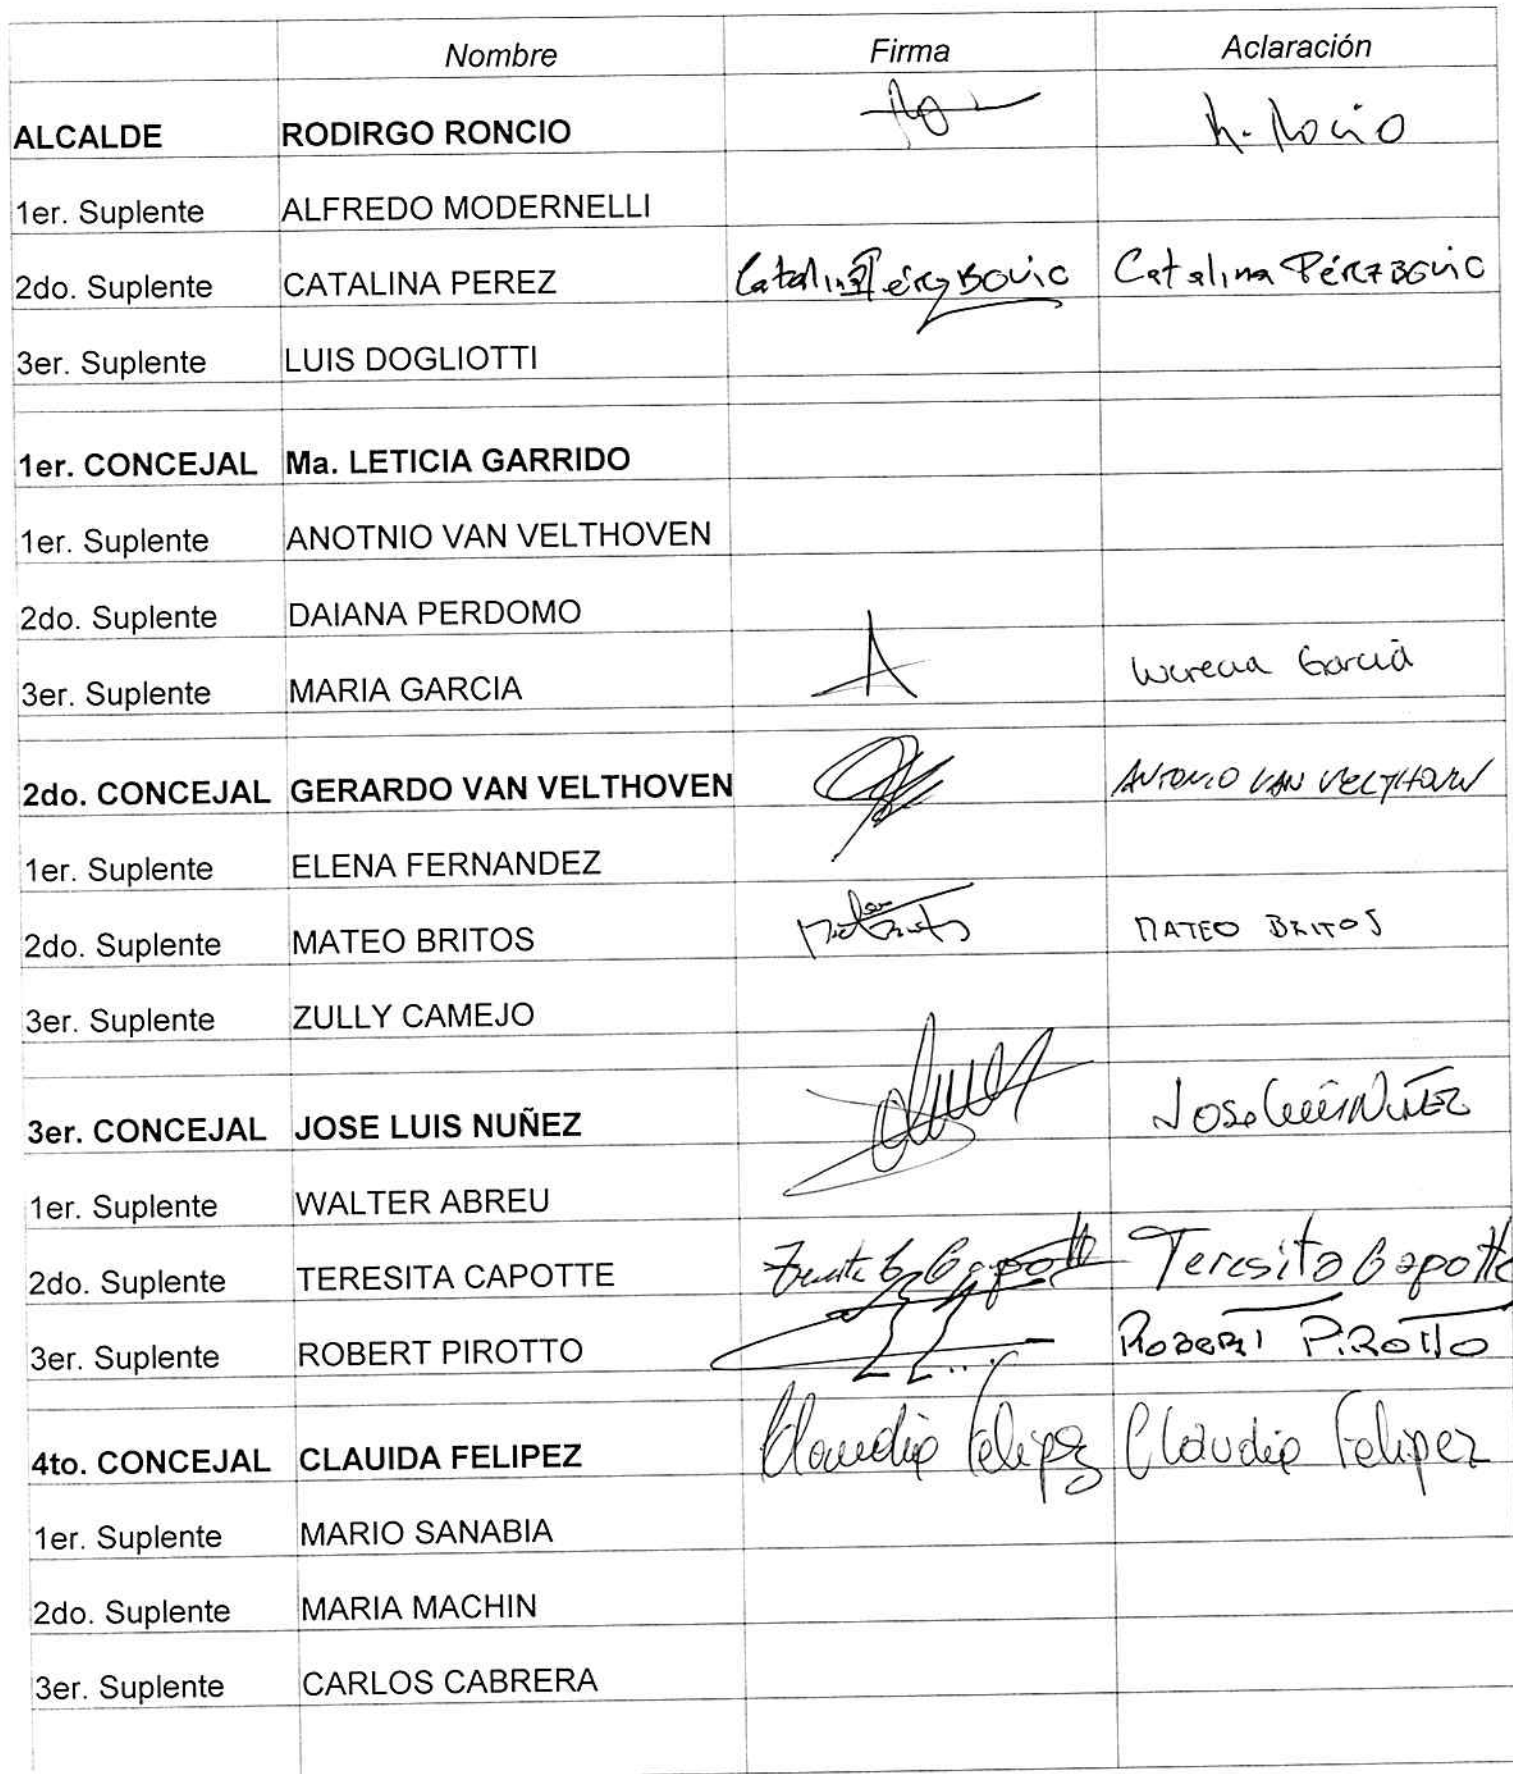 Nombre Firma Aclaración
ALCALDE RODIRGO RONCIO
1er. Suplente ALFREDO MODERNELLI
2do. Suplente CATALINA PEREZ Catalina Pérez Bovio Catalina Pérez Bovio
3er. Suplente LUIS DOGLIOTTI
1er. CONCEJAL Ma. LETICIA GARRIDO
1er. Suplente ANOTNIO VAN VELTHOVEN
2do. Suplente DAIANA PERDOMO
3er. Suplente MARIA GARCIA Lucrecia García
2do. CONCEJAL GERARDO VAN VELTHOVEN ANTONIO VAN VELTHOVEN
1er. Suplente ELENA FERNANDEZ
2do. Suplente MATEO BRITOS MATEO BRITOS
3er. Suplente ZULLY CAMEJO
3er. CONCEJAL JOSE LUIS NUÑEZ Jose Luis Nuñez
1er. Suplente WALTER ABREU
2do. Suplente TERESITA CAPOTTE Teresita Capotte
3er. Suplente ROBERT PIROTTO ROBERT PIROTTO
4to. CONCEJAL CLAUIDA FELIPEZ Claudia Felipez Claudia Felipez
1er. Suplente MARIO SANABIA
2do. Suplente MARIA MACHIN
3er. Suplente CARLOS CABRERA